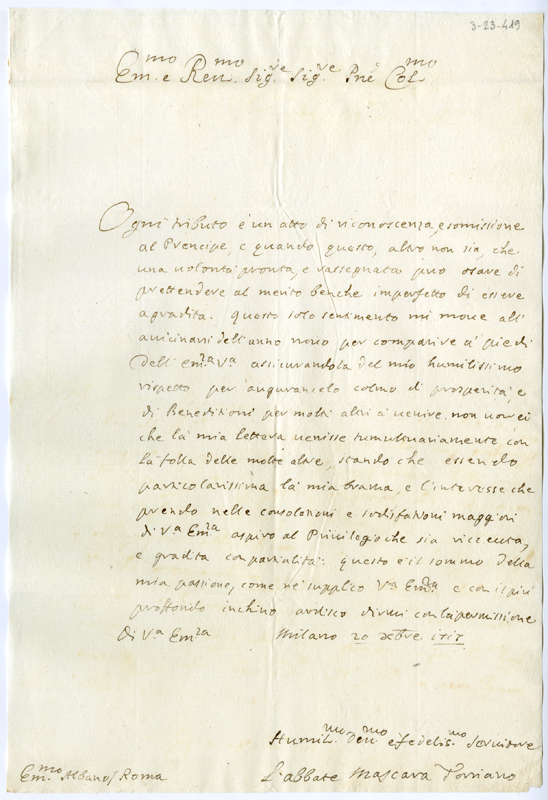 3-23-419
Em.mo e Rev.mo Sig.re Sig.re Pne Col.mo
Ogni tributo è un atto di riconoscenza, e somissione
al Prencipe, e quando questo, altro non sia, che
una volontà pronta, e rassegnata può osare di
prettendere al merito benche imperfetto di essere
agradita. Questo solo sentimento mi move all'
avicinarsi dell'anno novo per comparire a' piedi
dell'Em.za V.a assicurandola del mio humilissimo
rispetto per augurarcelo colmo di prosperità, e
di Beneditioni per molti altri a venire. non vorrei
che la mia lettera venisse tumultuariamente con
la folla delle molte altre, stando che essendo
particolarissima la mia brama, e l'interesse che
prendo nelle consolationi e sodisfationi maggiori
di V.a Em.za aspiro al Privilegio che sia riceuta,
e gradita con partialità: questo è il sommo della
mia passione, come ne supplico V.a Em.za e con il più
proffondo inchino ardisco dirmi con la permissione
di V.a Em.za Milano 20 xbre
Humil.mo Dev.mo e fedelis.mo Servitore
Em.mo Albano / Roma L'abbate Mascara Torriano